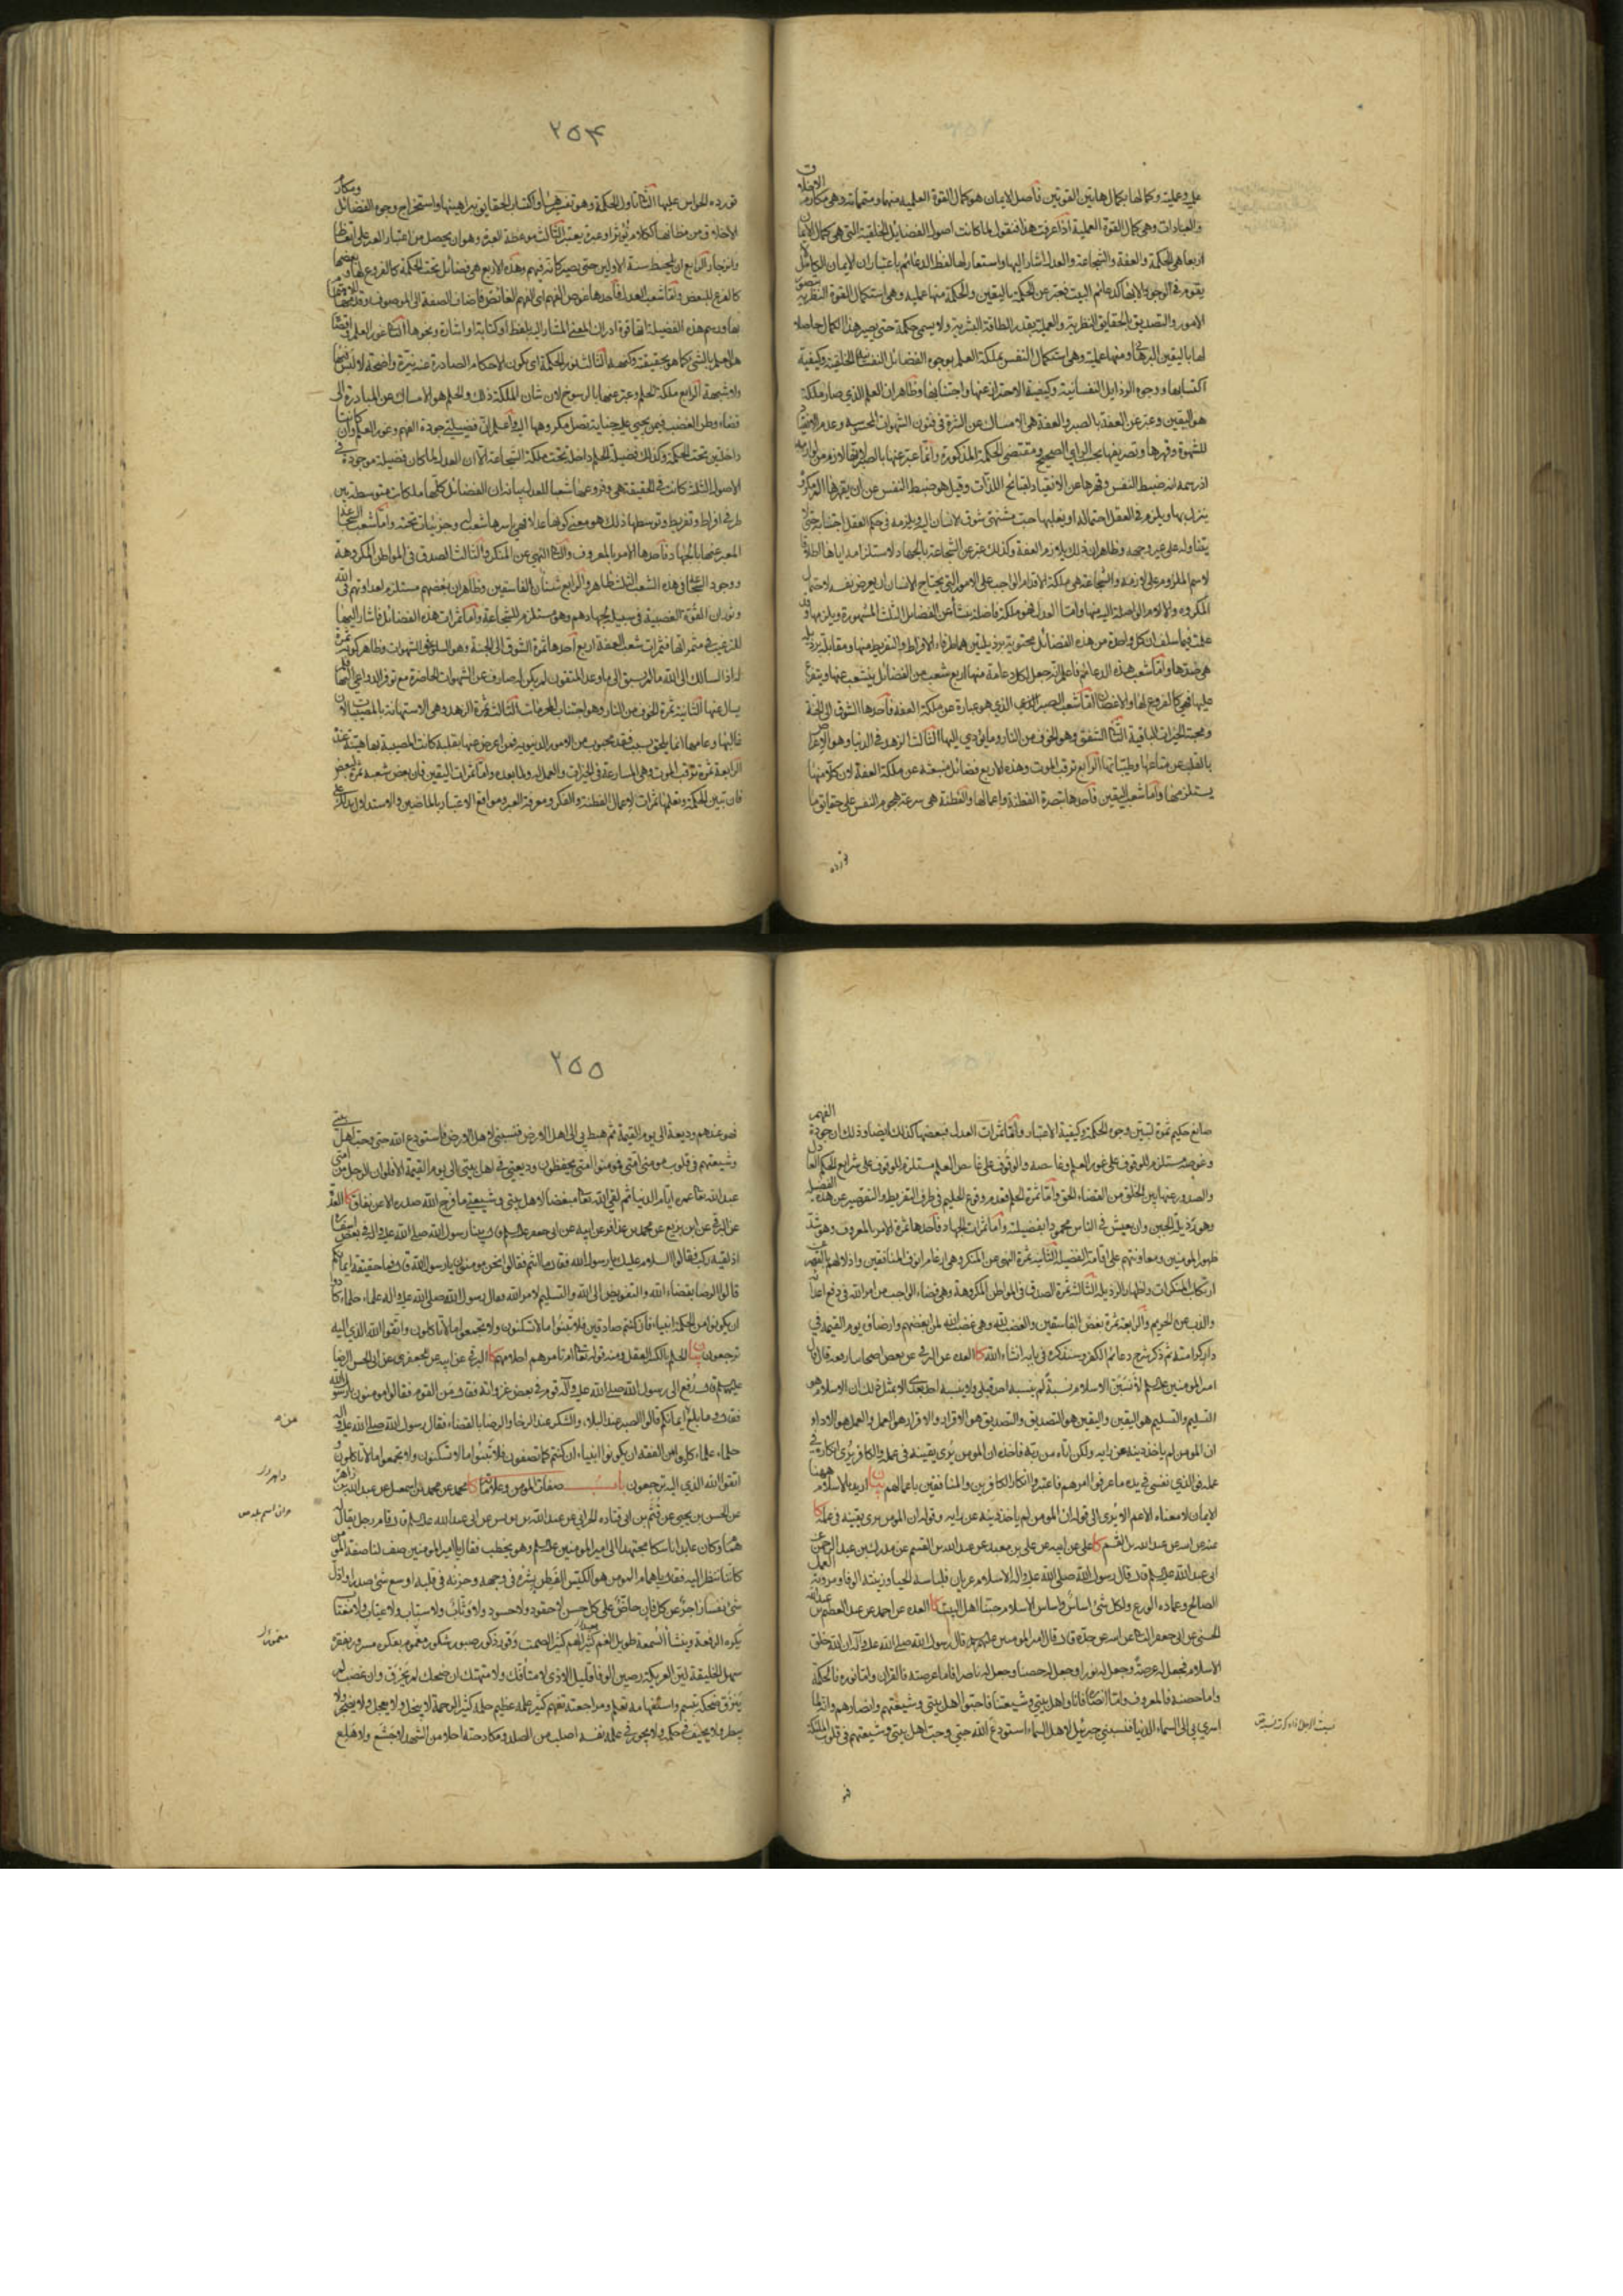 علمية وعملية وكمالها بكمال هاتين القوتين فأصل الايمان هو كمال القوة العلمية منها ومتمماته وهي مكارم الاخلاق
والعبادات وهي كمال القوة العملية اذا عرفت هذا فنقول لما كانت اصول الفضائل الخلقية التي هي كمال الايمان
اربعا هي الحكمة والعفة والشجاعة والعدل اشار اليها واستعار لها لفظ الدعائم باعتبار ان الايمان الكامل
يقوم في الوجود الا بها كدعائم البيت فعبر عن الحكمة باليقين والحكمة منها علمية وهي استكمال القوة النظرية بتصور
الامور والتصديق بالحقايق النظرية والعملية بقدر الطاقة البشرية ولا يسمى حكمة حتى يصير هذا الكمال حاصلا
لها باليقين والبرهان ومنها عملية وهي استكمال النفس بملكة العلم بوجوه الفضائل النفسانية الخلقية وكيفية
اكتسابها ووجوه الرذايل النفسانية وكيفية الاحتراز عنها واجتنابها وظاهر ان العلم الذي صار ملكة
هو اليقين وعبر عن العفة بالصبر والعفة هي الامساك عن الشره في فنون الشهوات المحسوسة وعدم الانقياد
للشهوة وقهرها وتصريفها بحسب الراي الصحيح ومقتضى الحكمة المذكورة وانما عبر عنها بالصبر لانها لازم من لوازمه
اذ رسمه انه ضبط النفس وقهرها عن الانقياد لقبائح اللذات وقيل هو ضبط النفس عن ان يقهرها الم مكروه
ينزل بها ويلزم في العقل احتماله او يغلبها حب مشتهى يتوق الانسان اليه ويلزمه في حكم العقل اجتنابه حتى لا
يتناوله على غير وجهه وظاهر ان ذلك يلازم العفة وكذلك عبر عن الشجاعة بالجهاد لاستلزامه اياها اطلاقا
لاسم الملزوم على لازمه والشجاعة هي ملكة الاقدام الواجب على الامور التي يحتاج الانسان ان يعرض نفسه لاحتمال
المكروه والالام الواصلة اليه منها واما العدل فهو ملكة فاضلة ينشأ عن الفضائل الثلث المشهورة ويلزمها وقد
علمت فيما سلف ان كل واحدة من هذه الفضائل محتوية برذيلتين هما طرفا الافراط والتفريط منها ومقابلة برذيلة
هي ضدها واما شعب هذه الدعائم فاعلم انه جعل لكل دعامة منها اربع شعب من الفضائل يتشعب عنها ويتفرع
عليها فهي كالفروع لها والاغصان اما شعب الصبر الذي هو عبارة عن ملكة العفة فأحدها الشوق الى الجنة
ومحبة الخيرات الباقية الثاني الشفق وهو الخوف من النار وما يؤدي اليها الثالث الزهد في الدنيا وهو الاعراض
بالقلب عن متاعها وطيباتها الرابع ترقب الموت وهذه الاربع فضائل منبعثة عن ملكة العفة لان كلا منها
يستلزمها واما شعب اليقين فأحدها تبصرة الفطنة واعمالها والفطنة هي سرعة هجوم النفس على حقايق ما
تورده
۲۵۴
تورده الحواس عليها الثاني تأول الحكمة وهو تفسيرها واكتساب الحقايق ببراهينها واستخراج وجوه الفضائل ومكارم
الاخلاق من مظانها ككلام يؤثر او عبرة يعتبر الثالث موعظة العبرة وهو ان يحصل من اعتبار العبر على اتعاظ
وانزجار الرابع ان يلحظ سنة الاولين حتى يصير كانه فيهم وهذه الاربع هي فضائل تحت الحكمة كالفروع لها وبعضها
كالفرع للبعض واما شعب العدل فأحدها غوص الفهم اي الفهم الغائص فاضاف الصفة الى الموصوف وقدمها للاهتمام
بها ورسم هذه الفضيلة انها قوة ادراك المعنى المشار اليه بلفظ او كتابة او اشارة ونحوها الثاني غور العلم واقصاه
هو العلم بالشيء كما هو بحقيقته وكنهه الثالث نور الحكمة اي يكون الاحكام الصادرة عنه نيرة واضحة لا لبس فيها
ولا شبهة الرابع ملكة الحلم وعبر عنها بالرسوخ لان شان الملكة ذلك والحلم هو الامساك عن المبادرة الى
قضاء وطر الغضب فيمن يجني عليه جناية يصل مكروهها اليه واعلم ان فضيلتي جودة الفهم وغور العلم وان كانتا
داخلتين تحت الحكمة وكذلك فضيلة الحلم داخلة تحت ملكة الشجاعة الا ان العدل لما كان فضيلة موجودة في
الاصول الثلث كانت في الحقيقة هي وفروعها شعبا للعدل بيانه ان الفضائل كلها ملكات متوسطة بين
طرفي افراط وتفريط وتوسطها ذلك هو معنى كونها عدلا فهي باسرها شعب له وجزئيات تحته واما شعب الشجاعة
المعبر عنها بالجهاد فأحدها الامر بالمعروف والثاني النهي عن المنكر والثالث الصدق في المواطن المكروهة
ووجود الشجاعة في هذه الشعب الثلث ظاهر والرابع شنآن الفاسقين وظاهر ان بغضهم مستلزم لعداوتهم في الله
وثوران القوة الغضبية في سبيله لجهادهم وهو مستلزم للشجاعة واما ثمرات هذه الفضائل فاشار اليها
للترغيب في مثمراتها فثمرات شعب العفة اربع احدها ثمرة الشوق الى الجنة وهو السلو عن الشهوات وظاهر كونه ثمرة
له اذ السالك الى الله ما لم يشتق الى ما وعد المتقون لم يكن له صارف عن الشهوات الحاضرة مع توفر الدواعي اليها فلم
يسل عنها الثانية ثمرة الخوف من النار وهو اجتناب المحرمات الثالثة ثمرة الزهد وهي الاستهانة بالمصيبات لان
غالبها وعامها انما يلحق بسبب فقد محبوب من الامور الدنيوية فمن اعرض عنها بقلبه كانت المصيبة بها هينة عنده
الرابعة ثمرة ترقب الموت وهي المسارعة في الخيرات والعمل له ولما بعده واما ثمرات اليقين فان بعض شعبه ثمرة لبعض
فان تبين الحكمة وتعلمها ثمرات لاعمال الفطنة والفكر ومعرفة العبر ومواقع الاعتبار بالماضين والاستدلال بذلك على
صانع حكيم ثمرة لتبين وجوه الحكمة وكيفية الاعتبار واما ثمرات العدل فبعضها كذلك ايضا وذلك ان جودة الفهم
وغوصه مستلزم للوقوف على غور العلم وغامضه والوقوف على غامض العلم مستلزم للوقوف على شرايع الحكم العادل
والصدور عنها بين الخلق من القضاء الحق واما ثمرة الحلم فعدم وقوع الحليم في طرف التفريط والتقصير عن هذه الفضيلة
وهو رذيلة الجبن وان يعيش في الناس محمودا بفضيلته واما ثمرات الجهاد فأحدها ثمرة الامر بالمعروف وهو شد
ظهور المؤمنين ومعاونتهم على اقامة الفضيلة الثانية ثمرة النهي عن المنكر وهي ارغام انوف المنافقين واذلالهم بالقهر عن
ارتكاب المنكرات واظهار الرذيلة الثالثة ثمرة الصدق في المواطن المكروهة وهي قضاء الواجب من امر الله في دفع اعدائه
والذب عن الحريم والرابعة ثمرة بغض الفاسقين والغضب لله وهي غضب الله لمن ابغضهم وارضاؤه يوم القيمة في
دار كرامته ثم ذكر شرح دعائم الكفر وسنذكره في بابه انشاء الله كا العدة عن البرقي عن بعض اصحابنا رفعه قال قال
امير المؤمنين عليه السلام لأنسبن الاسلام نسبة لم ينسبه احد قبلي ولا ينسبه احد بعدي الا بمثل ذلك ان الاسلام هو
التسليم والتسليم هو اليقين واليقين هو التصديق والتصديق هو الاقرار والاقرار هو العمل والعمل هو الاداء
ان المؤمن لم ياخذ دينه عن رايه ولكن اتاه من ربه فاخذه ان المؤمن يرى يقينه في عمله والكافر يرى انكاره في
عمله فو الذي نفسي بيده ما عرفوا امرهم فاعتبروا انكار الكافرين والمنافقين باعمالهم بيان اريد بالاسلام ههنا
الايمان لا معناه الاعم الا يرى الى قوله ان المؤمن لم ياخذ دينه عن رايه وقوله ان المؤمن يرى يقينه في عمله كا
عنه عن ابيه عن عبد الله بن القسم كا علي عن ابيه عن علي بن معبد عن عبد الله بن القسم عن مدرك بن عبد الرحمن عن
ابي عبد الله عليه السلام قال قال رسول الله صلى الله عليه واله الاسلام عريان فلباسه الحياء وزينته الوفاء ومروته العمل
الصالح وعماده الورع ولكل شيء اساس واساس الاسلام حبنا اهل البيت كا العدة عن احمد عن عبد العظيم بن عبد الله
الحسني عن ابي جعفر الثاني عن ابيه عن جده قال قال امير المؤمنين عليه السلام قال رسول الله صلى الله عليه وآله ان الله خلق
الاسلام فجعل له عرصة وجعل له نورا وجعل له حصنا وجعل له ناصرا فاما عرصته فالقران واما نوره فالحكمة
واما حصنه فالمعروف واما انصاره فانا واهل بيتي وشيعتنا فاحبوا اهل بيتي وشيعتهم وانصارهم فانه لما
اسري بي الى السماء الدنيا فنسبني جبرئيل لاهل السماء استودع الله حبي وحب اهل بيتي وشيعتهم في قلوب الملئكة
فهو
۲۵۵
فهو عندهم وديعة الى يوم القيمة ثم هبط بي الى اهل الارض فنسبني لاهل الارض فاستودع الله حبي وحب اهل بيتي
وشيعتهم في قلوب مؤمني امتي فمؤمنوا امتي يحفظون وديعتي في اهل بيتي الى يوم القيمة الا فلو ان الرجل من امتي
عبد الله تعالى عمره ايام الدنيا ثم لقي الله تعالى مبغضا لاهل بيتي وشيعتي ما فرج الله صدره الا عن نفاق كا العدة
عن البرقي عن ابن بزيع عن محمد بن عذافر عن ابيه عن ابي جعفر عليه السلام قال بينا رسول الله صلى الله عليه واله في بعض اسفاره
اذ لقيه ركب فقالوا السلام عليك يا رسول الله فقال ما انتم فقالوا نحن مؤمنون يا رسول الله قال فما حقيقة ايمانكم
قالوا الرضا بقضاء الله والتفويض الى الله والتسليم لامر الله فقال رسول الله صلى الله عليه واله علماء حلماء كادوا
ان يكونوا من الحكمة انبياء فان كنتم صادقين فلا تبنوا ما لا تسكنون ولا تجمعوا ما لا تاكلون واتقوا الله الذي اليه
ترجعون بيان الحلم بالكسر العقل ومنه قوله تعالى ام تامرهم احلامهم كا البرقي عن ابيه عن الجعفري عن ابي الحسن الرضا
عليه السلام قال رفع الى رسول الله صلى الله عليه وآله قوم في بعض غزواته فقال من القوم فقالوا مؤمنون يا رسول الله
فقال وما بلغ من ايمانكم قالوا الصبر عند البلاء والشكر عند الرخاء والرضا بالقضاء فقال رسول الله صلى الله عليه واله
حلماء علماء كادوا من الفقه ان يكونوا انبياء ان كنتم كما تصفون فلا تبنوا ما لا تسكنون ولا تجمعوا ما لا تاكلون و
اتقوا الله الذي اليه ترجعون باب صفات المؤمن وعلاماته كا محمد عن محمد بن اسمعيل عن عبد الله بن زاهر
عن الحسن بن يحيى عن قثم بن ابي قتادة الحراني عن عبد الله بن يونس عن ابي عبد الله عليه السلام قال قام رجل يقال له
همام وكان عابدا ناسكا مجتهدا الى امير المؤمنين عليه السلام وهو يخطب فقال يا امير المؤمنين صف لنا صفة المؤمن
كاننا ننظر اليه فقال يا همام المؤمن هو الكيس الفطن بشره في وجهه وحزنه في قلبه اوسع شيء صدرا واذل
شيء نفسا زاجر عن كل فان حاض على كل حسن لا حقود ولا حسود ولا وثاب ولا سباب ولا عياب ولا مغتاب
يكره الرفعة ويشنأ السمعة طويل الغم بعيد الهم كثير الصمت وقور ذكور صبور شكور مغموم بفكره مسرور بفقره
سهل الخليقة لين العريكة رصين الوفاء قليل الاذى لا متافك ولا متهتك ان ضحك لم يخرق وان غضب لم
ينزق ضحكه تبسم واستفهامه تعلم ومراجعته تفهم كثير علمه عظيم حلمه كثير الرحمة لا يبخل ولا يعجل ولا يضجر ولا
يبطر ولا يحيف في حكمه ولا يجور في علمه نفسه اصلب من الصلد ومكادحته احلى من الشهد لا جشع ولا هلع
عنه
داهر
حران اسم بلد ص
مغموم